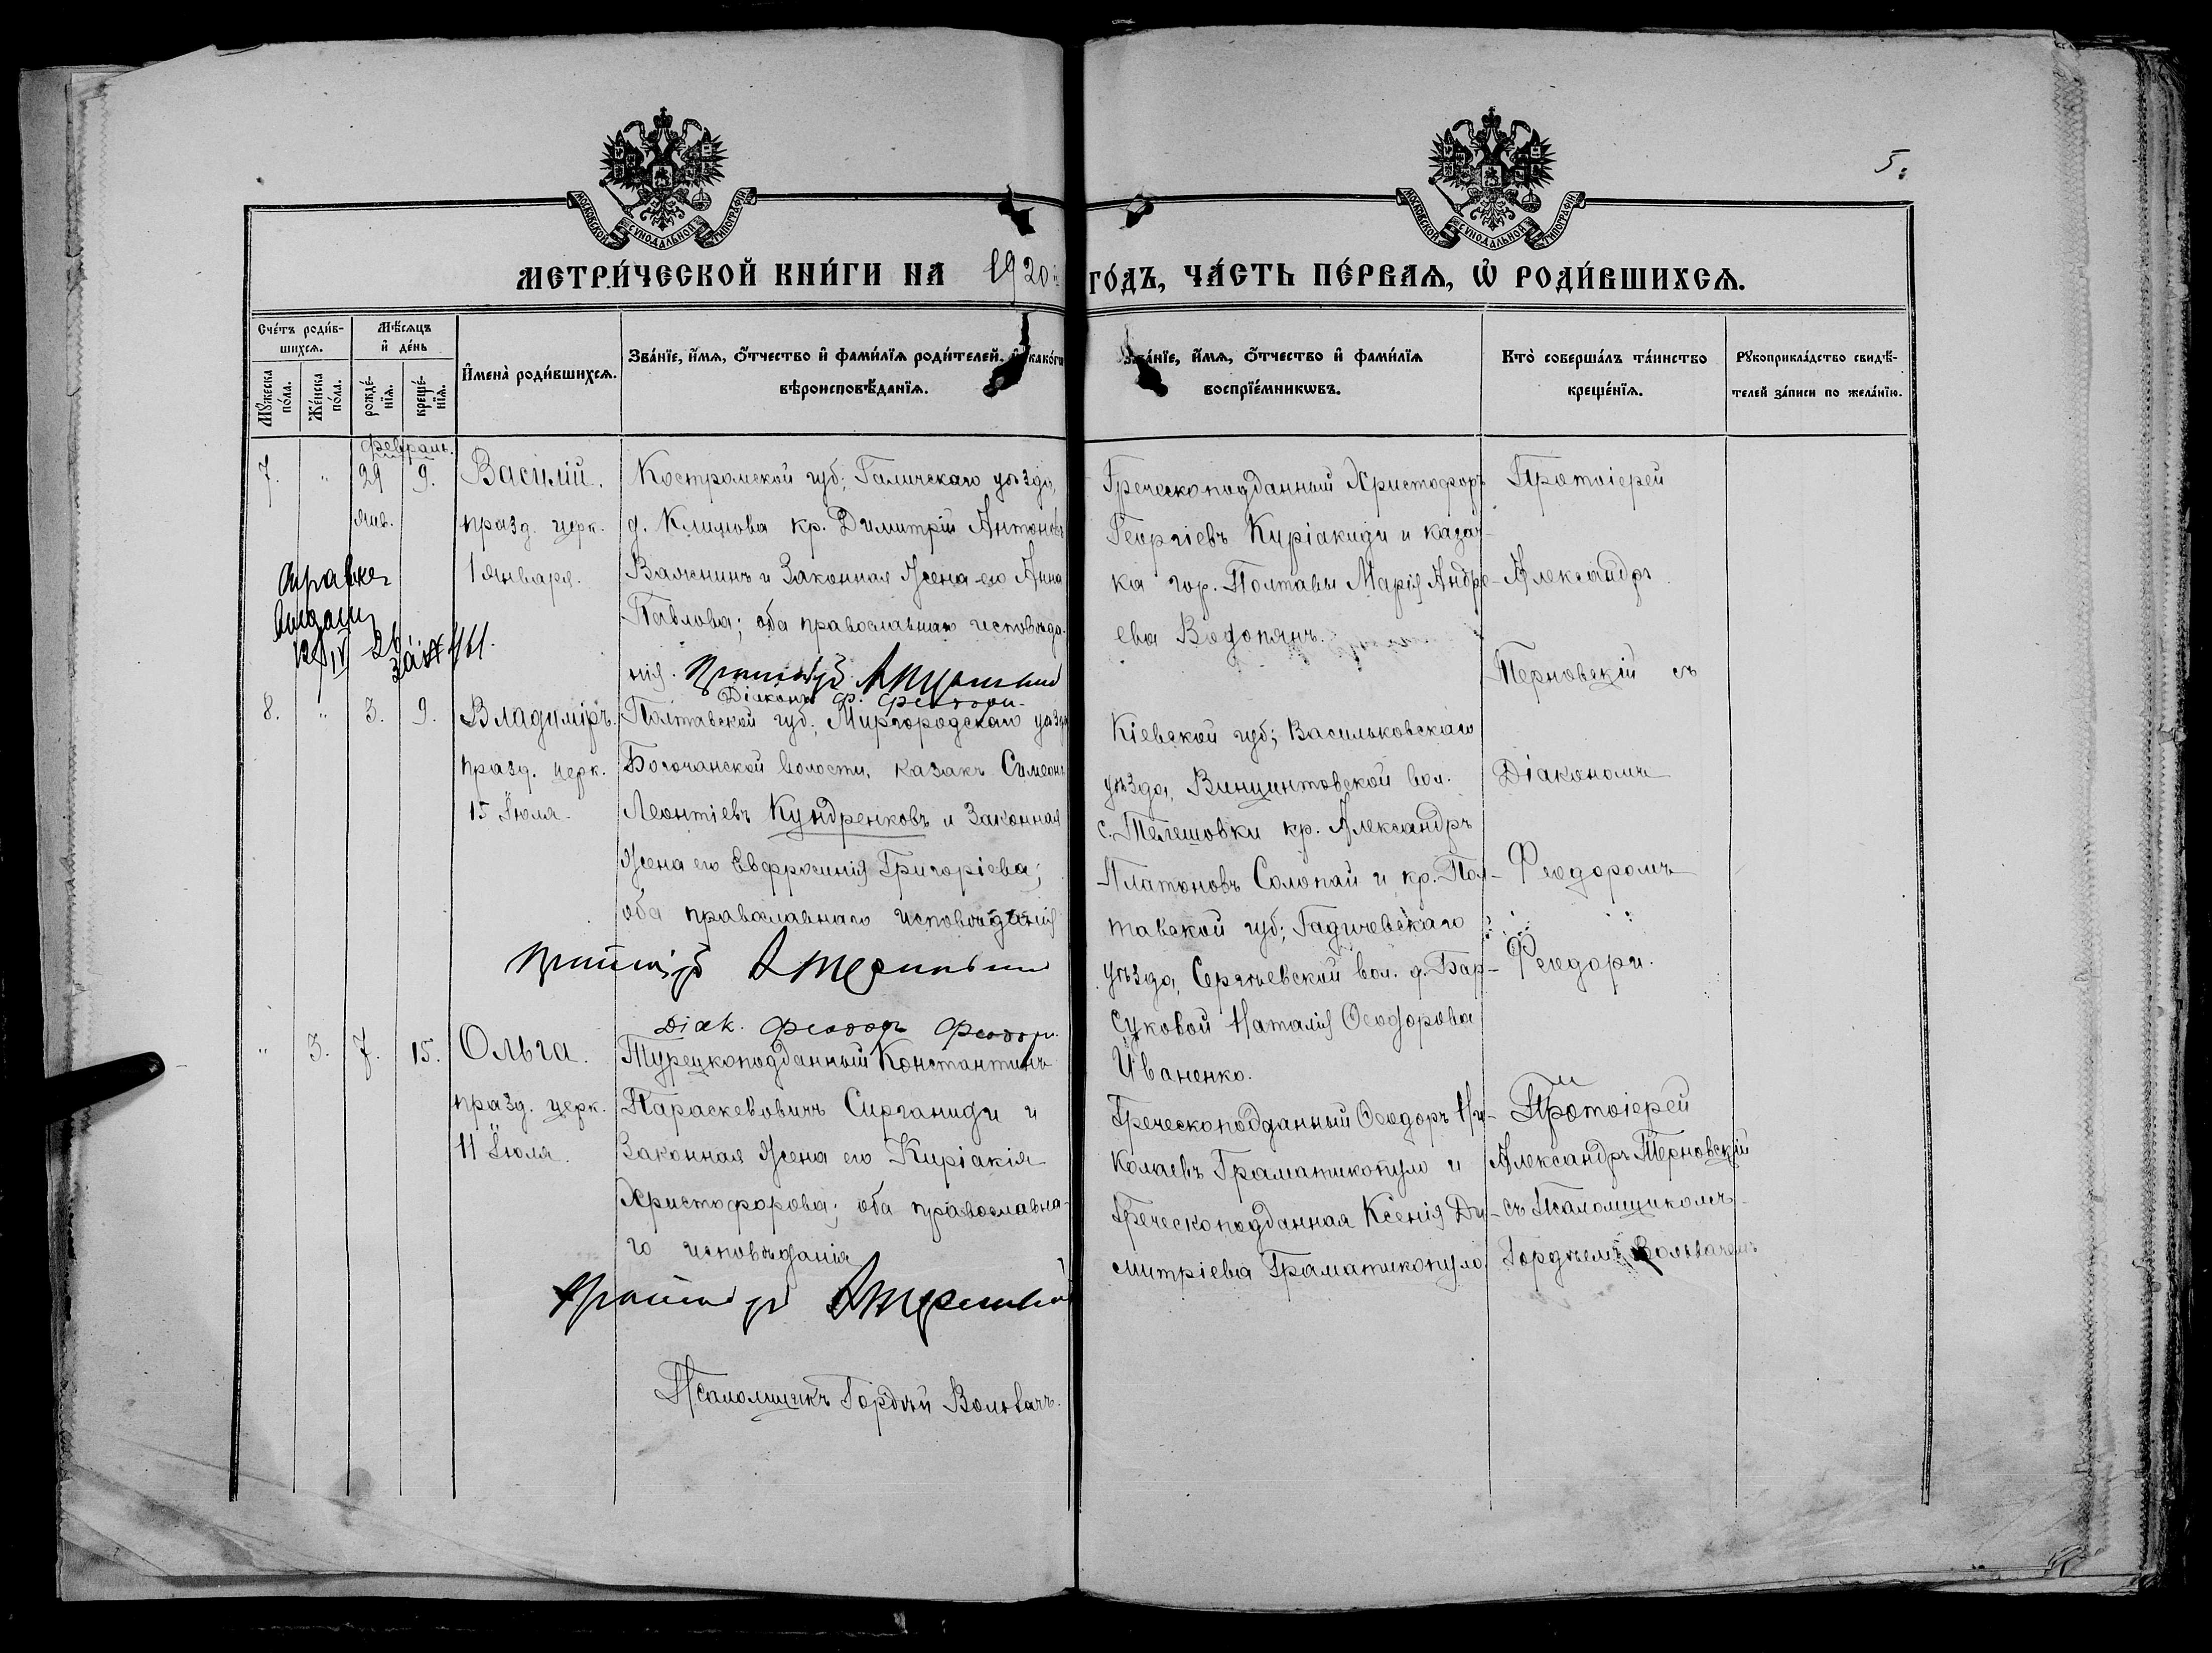 5.
МОСКОВСКОЙ СѴНОДАЛЬНОЙ ТИПОГРАФІИ
МОСКОВСКОЙ СѴНОДАЛЬНОЙ ТИПОГРАФІИ
МЕТРИ́ЧЕСКОЙ КНИ́ГИ НА 1920
ГО́ДЪ, ЧА́СТЬ ПЕ́РВАѦ, Ѽ РОДИ́ВШИХСѦ.
Сче́тъ роди́в-
шихсѧ.
Мꙋжеска
по́ла.
Же́нска
по́ла.
Мѣ́сѧцъ
и҆ де́нь
рожде́-
нїѧ.
креще́-
нїѧ.
И҆мена̀ роди́вшихсѧ.
Зва́нїе, и҆́мѧ, ѻ҆́тчество и҆ фами́лїѧ роди́телей, и҆ како́гѡ
вѣроисповѣ́данїѧ.
Зва́нїе, и҆́мѧ, ѻ҆́тчество и҆ фами́лїѧ
воспрїе́мникѡвъ.
Кто̀ соверша́лъ та́инство
креще́нїѧ.
Рꙋкоприкла́дство свидѣ́-
телей за́писи по жела́нїю.
февраль.
7. " 29 9.
янв.
Василій.
празд. церк.
1 Января.
Костромской губ; Галичскаго уѣзда,
д. Климова кр. Димитрій Антоновъ
Важенинъ и законная жена его Анна
Павлова; оба православнаго исповѣда-
нія.
Діаконъ Ф. Феодори.
Греческоподданный Христофоръ
Георгіевъ Киріакиди и казач-
ка гор. Полтавы Марія Андре-
ева Водопянъ.
Протоіерей
Александръ
Терновскій съ
Діакономъ
Феодоромъ
Феодори.
Справка
выдана
8. " 3. 9.
Владиміръ.
празд. церк.
15 Іюля.
Полтавской губ; Миргородскаго уѣзда
Богочанской волости, казакъ Симеонъ
Леонтіевъ Кундренковъ и законная
жена его Евфросинія Григоріева;
оба православнаго исповѣданія
Діак. Феодоръ Феодори.
Кіевской губ; Васильковскаго
уѣзда, Винцентовской вол.
с. Телешовки кр. Александръ
Платоновъ Солопай и кр. Пол-
тавской губ; Гадичевскаго
уѣзда, Сергѣевской вол. д. Бар-
суковой Наталія Ѳеодорова
Иваненко.
" 3. 7. 15.
Ольга.
празд. церк.
11 Іюля.
Турецкоподданный Константинъ
Параскевовичъ Сирганиди и
законная жена его Киріакія
Христофорова; оба православна-
го исповѣданія
Греческоподданный Ѳеодоръ Ни-
колаевъ Граматикопуло и
Греческоподданная Ксенія Ди-
митріева Граматикопуло
Протоіерей
Александръ Терновскій
съ Псаломщикомъ
Гордѣемъ Вольвачемъ
Псаломщикъ Гордѣй Вольвачъ.